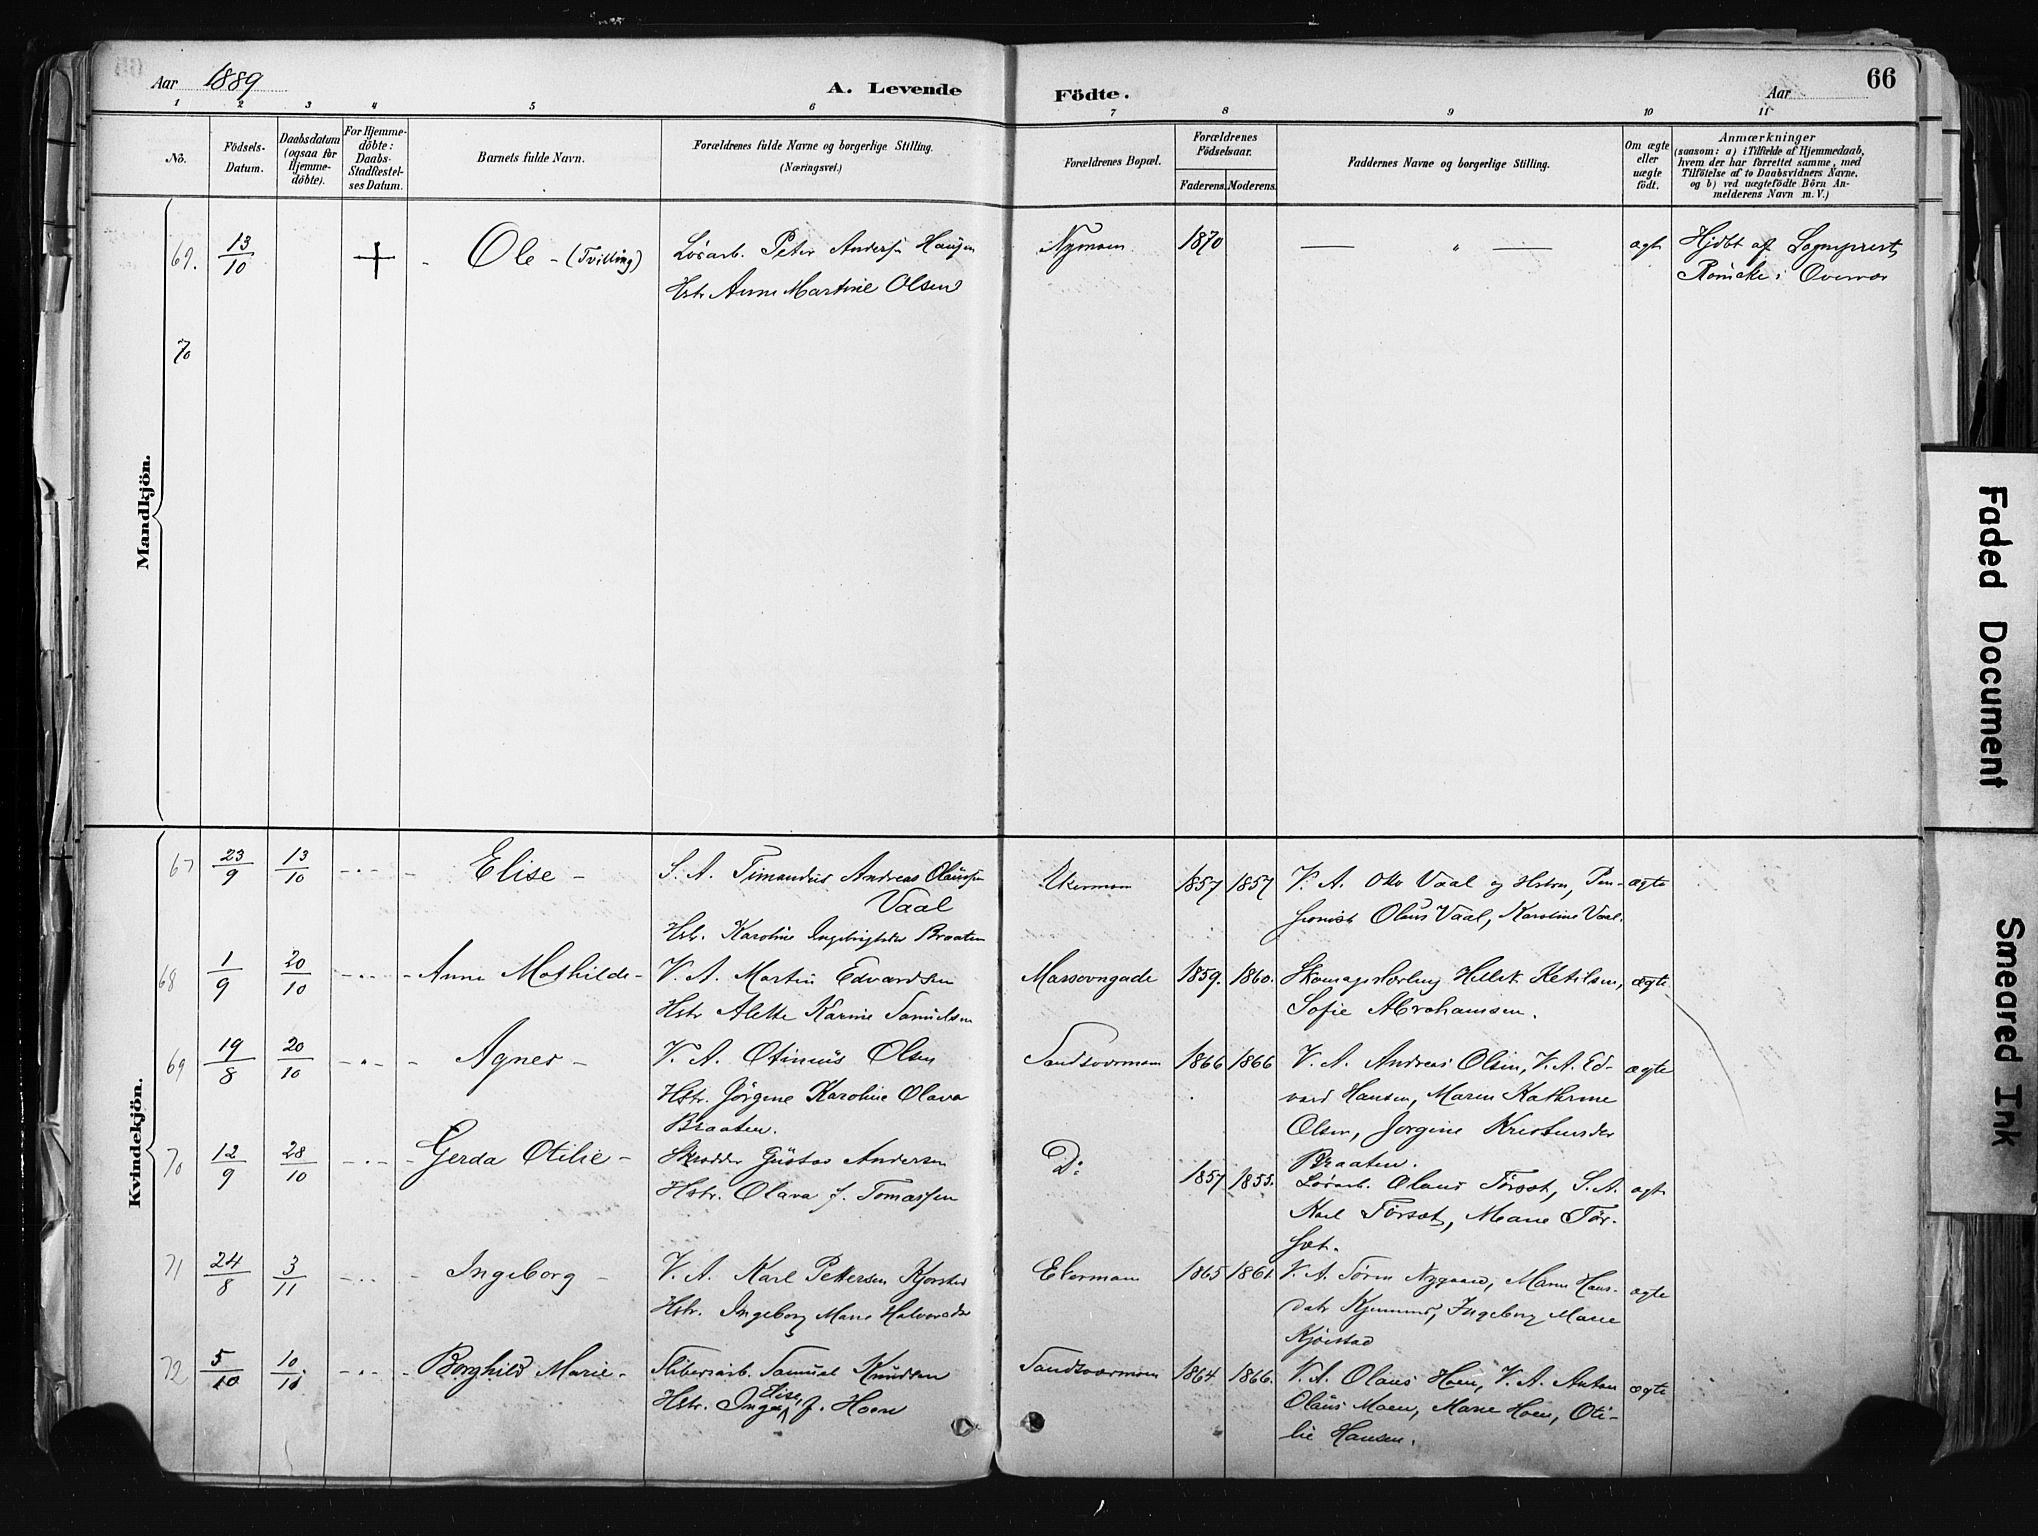 Aar 1889
A. Levende
Födte.
Aar
66
1 2 3 4 5 6 7 8 9 10 11
No.
Födsels-
Datum.
Daabsdatum
(ogsaa for
Hjemme-
döbte).
For Hjemme-
döbte:
Daabs-
Stadfæstel-
ses Datum.
Barnets fulde Navn.
Forældrenes fulde Navne og borgerlige Stilling.
(Næringsvei.)
Forældrenes Bopæl.
Forældrenes
Födselsaar.
Faderens. Moderens.
Faddernes Navne og borgerlige Stilling.
Om ægte
eller
uægte
födt.
Anmærkninger
(saasom: a) i Tilfælde af Hjemmedaab,
hvem der har forrettet samme, med
Tilföielse af to Daabsvidners Navne.
og b) ved uægtefödte Börn An-
melderens Navn m. V.)
Mandkjön.
69. 13/10 Ole - (Tvilling)
Løsarb. Peter Andersen Haugen
Hstr Anne Martine Olsen
Nymoen 1870
ægt
Hjdbt af Sogneprest
i Overvær
70
Kvindekjön.
67 23/9 13/10 Elise -
S. A. Timandus Andreas Olaussen
Vaal
Hstr. Karoline Ingebrigtsdtr Braaten
1857 1857
V. A. Otto Vaal og Hstru, Pen-
sionist Olaus Vaal, Karoline Vaal.
ægte
68 1/9 20/10 Anne Mathilde -
V. A. Martin Edvardsen
Hstr Alette Karine Samuelsen
Massovngade 1859. 1860.
Skomagerlærling Hellek Ketilsen,
Sofie Abrahamsen.
ægte
69 19/8 20/10 Agnes -
V. A. Otinius Olsen
Hstr. Jörgine Karoline Olava
Braaten.
Sandsværmoen 1866 1866
V. A. Andreas Olsen, V. A. Ed-
vard Hansen, Maren Kathrine
Olsen, Jorgine Kristensdtr
Braaten.
ægte
70 12/9 28/10 Gerda Otilie -
Skrædder Gustav Andersen
Hstr. Olava f. Tomassen
Do 1857 1855.
Løsarb. Olaus Törset, S. A.
Karl Törset, Marie Tör-
set.
ægt
71 24/8 3/11 Ingeborg -
V. A. Karl Pettersen Kjørstad
Hstr. Ingeborg Marie Halvorsdtr
Ekermoen 1865 1861.
V. A. Sören Nygaard, Maren Hans-
datr Kjemmerud, Ingeborg Marie
Kjörstad
ægte
72 5/10 10/11 Borghild Marie -
Sliberiarb. Samuel Knudsen
Hstr. Inger Elise f. Hoen
Sandsværmoen 1864 1866.
V. A. Olaus Hoen, V. A. Anton
Olaus Moen, Marie Hoen, Oti-
lie Hansen.
ægte
Faded Document
Smeared Ink